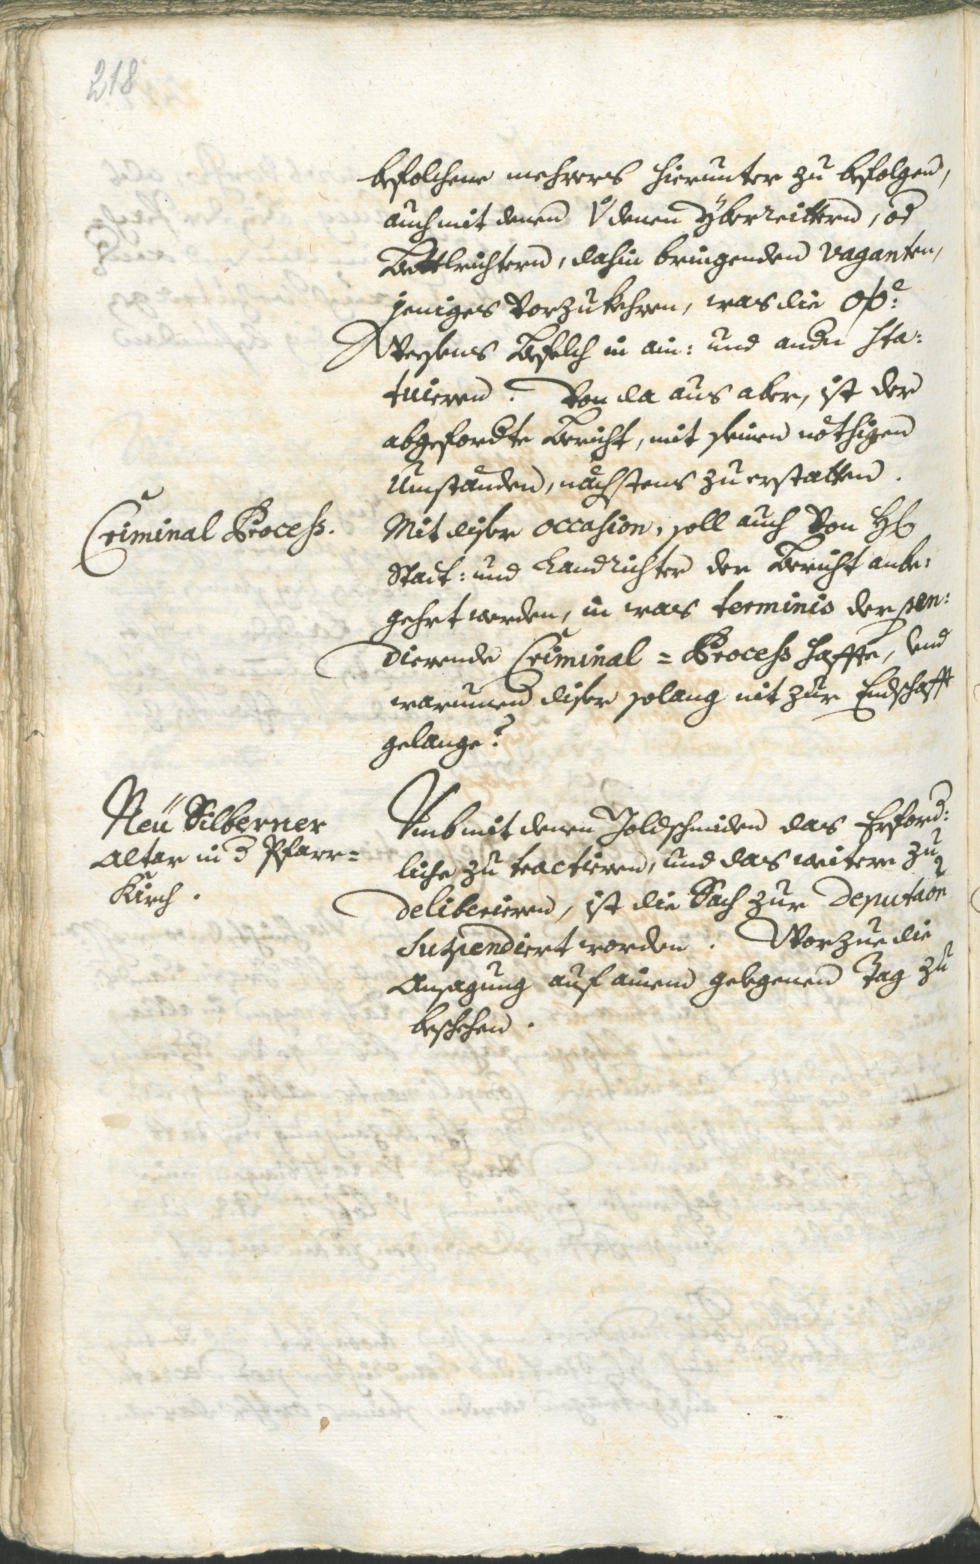 218
befolchene mehrers hierunter zu befolgen,
auch mit denen V. denen Yberreittern, od
Bettlrichtern, dahin bringenden Vaganten,
jeniges Vorzukehren, was die
Weesens Befelch in ain: und andn sta:
tuieren. Von da aus aber, ist der
abgefordte Bericht, mit seinen nöthigen
Umständen, nächstens zu erstatten.
Criminal Process.
Mit diser occasion, soll auch Von H
Statt: und Landrichter der Bericht anbe:
gehrt werden, in was terminis der pen:
dierende Criminal = Process haffte, Und
warumen diser solang nit zur Endschafft
gelange?
Neü Silberner
Altar in d Pfarr=
Kirch.
Umb mit denen Goldschmiden das Erford:
liche zu tractieren, und das weitere zu
deliberieren, ist die Sach zur Deputaõn
suspendiert worden. Worzue die
Ansagung auf ainen gelegenen Tag zu
beschehen.